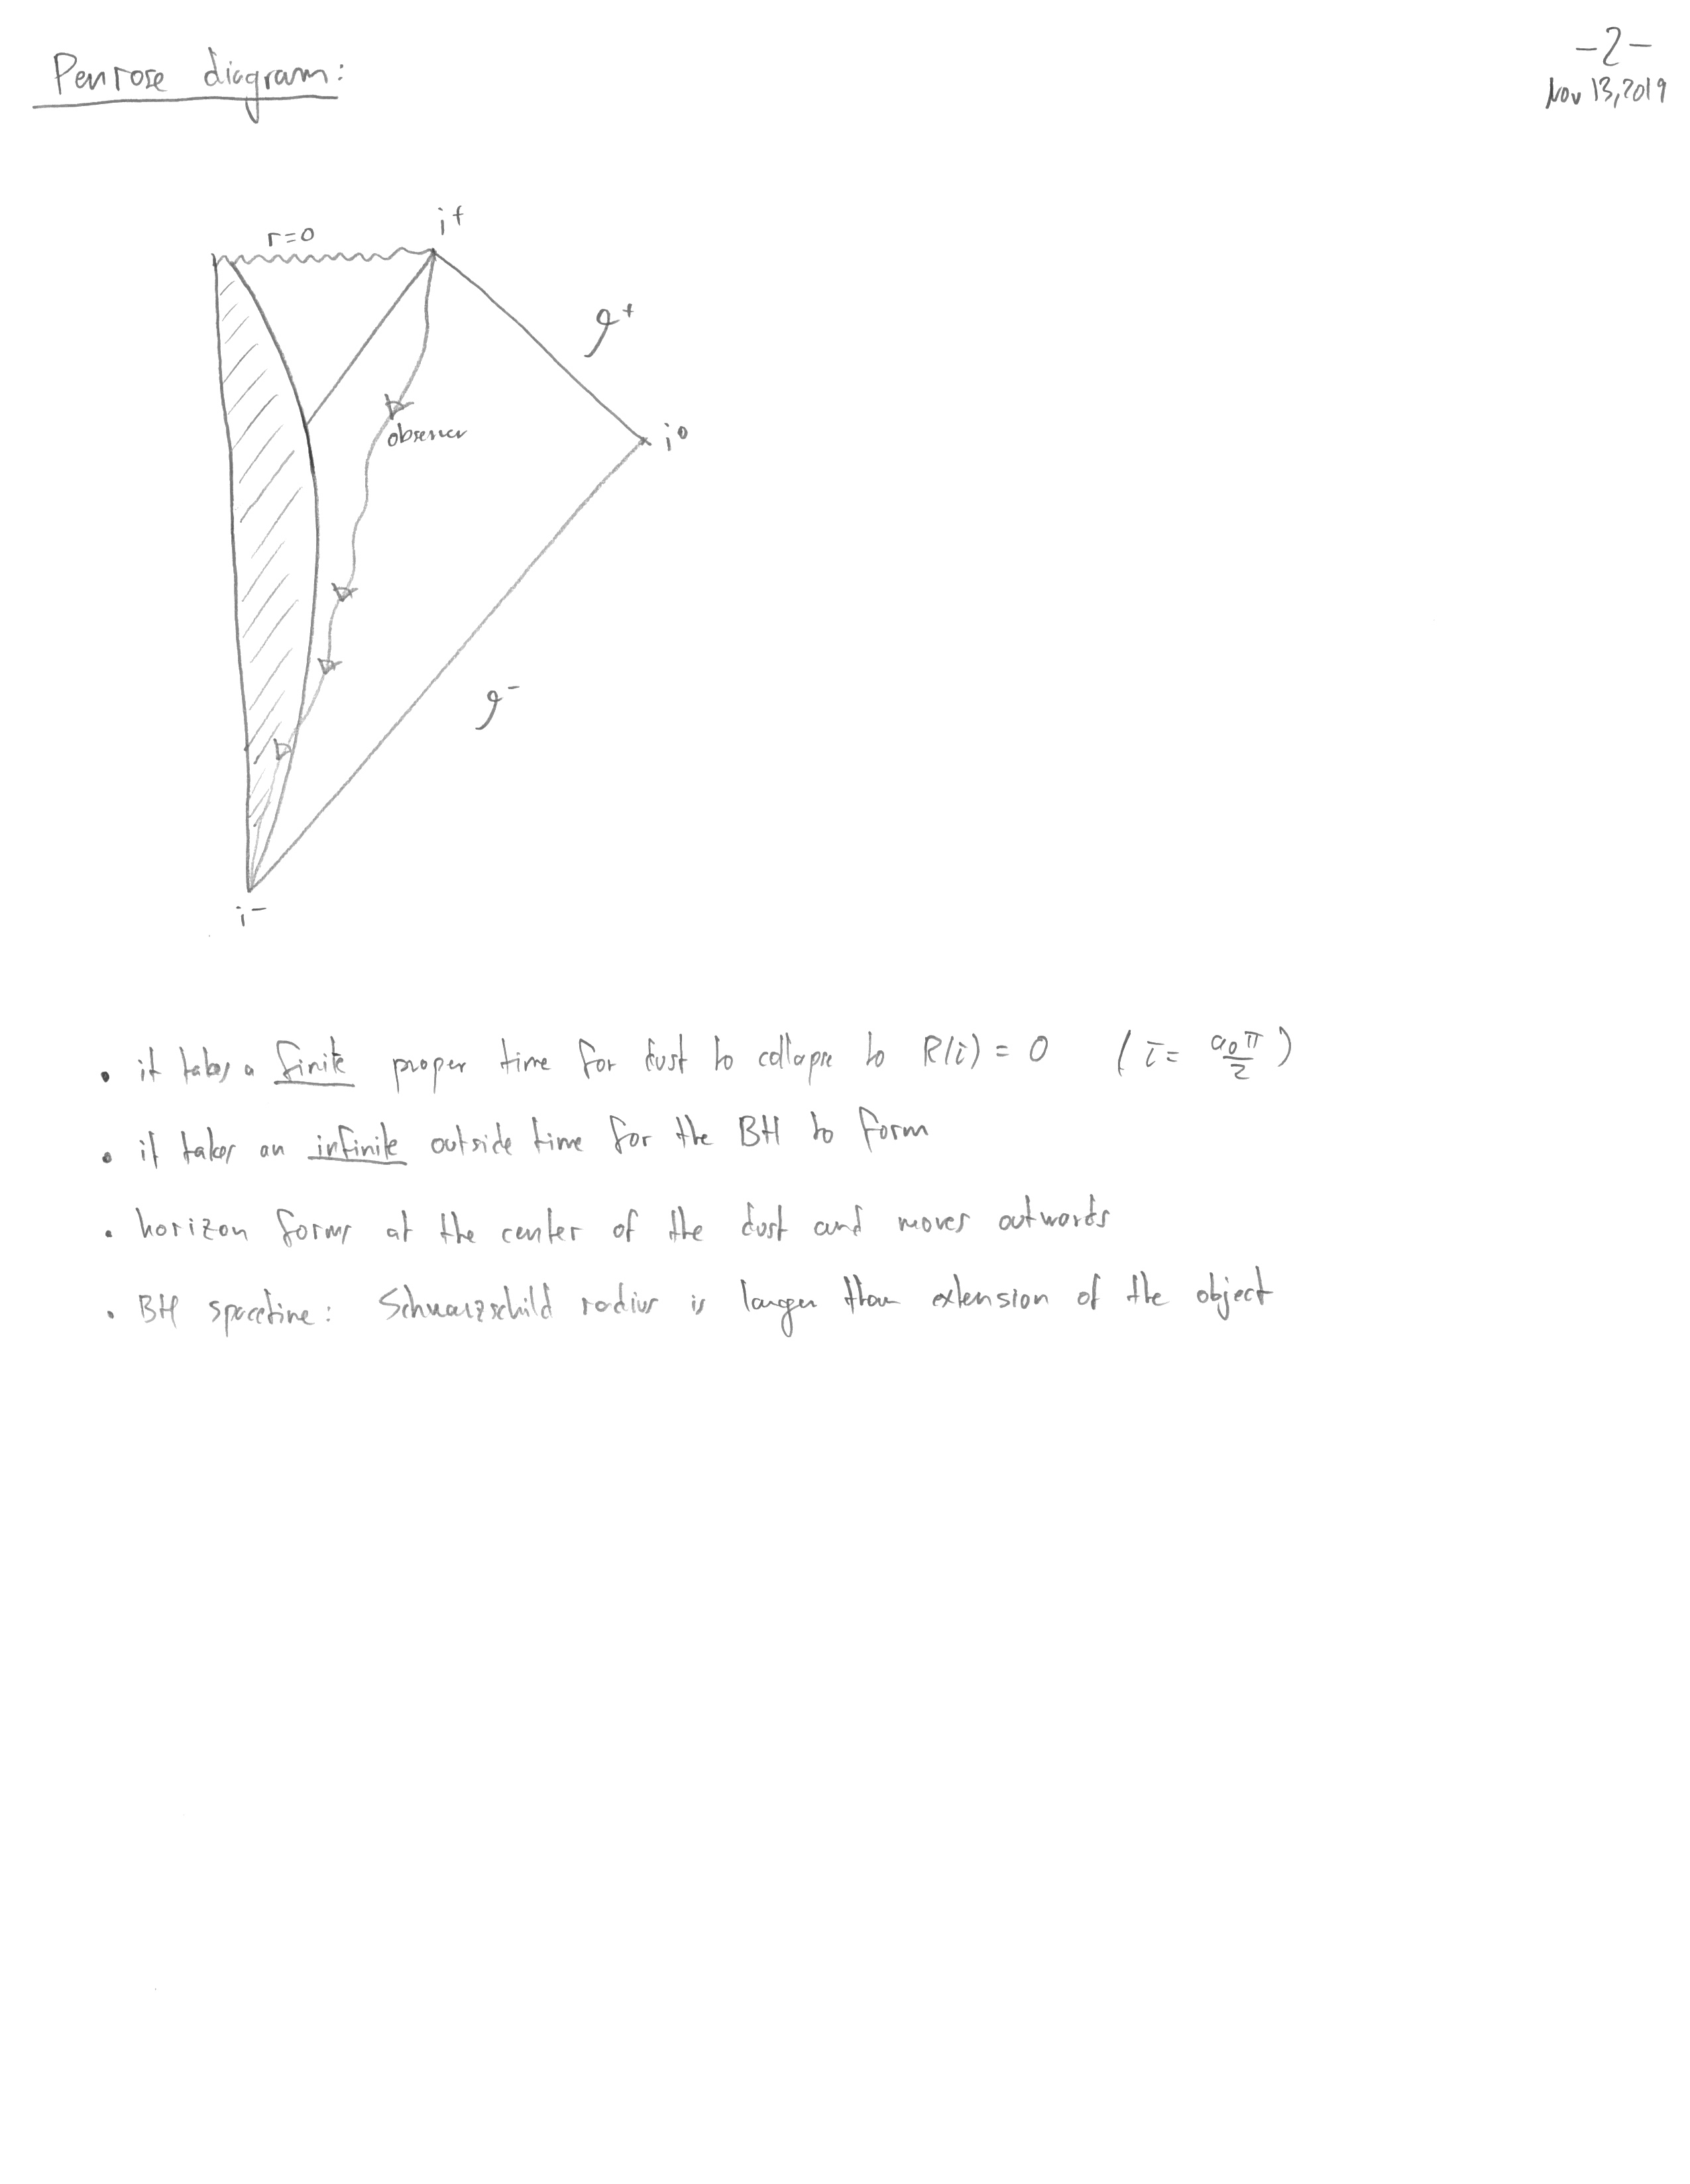 Penrose diagram:
-2-
Nov 13, 2019
r=0
i⁺
𝓘⁺
observer
i⁰
𝓘⁻
i⁻
• it takes a finite proper time for dust to collapse to R(τ) = 0 (τ = a₀π/2)
• it takes an infinite outside time for the BH to form
• horizon forms at the center of the dust and moves outwards
• BH spacetime: Schwarzschild radius is larger than extension of the object